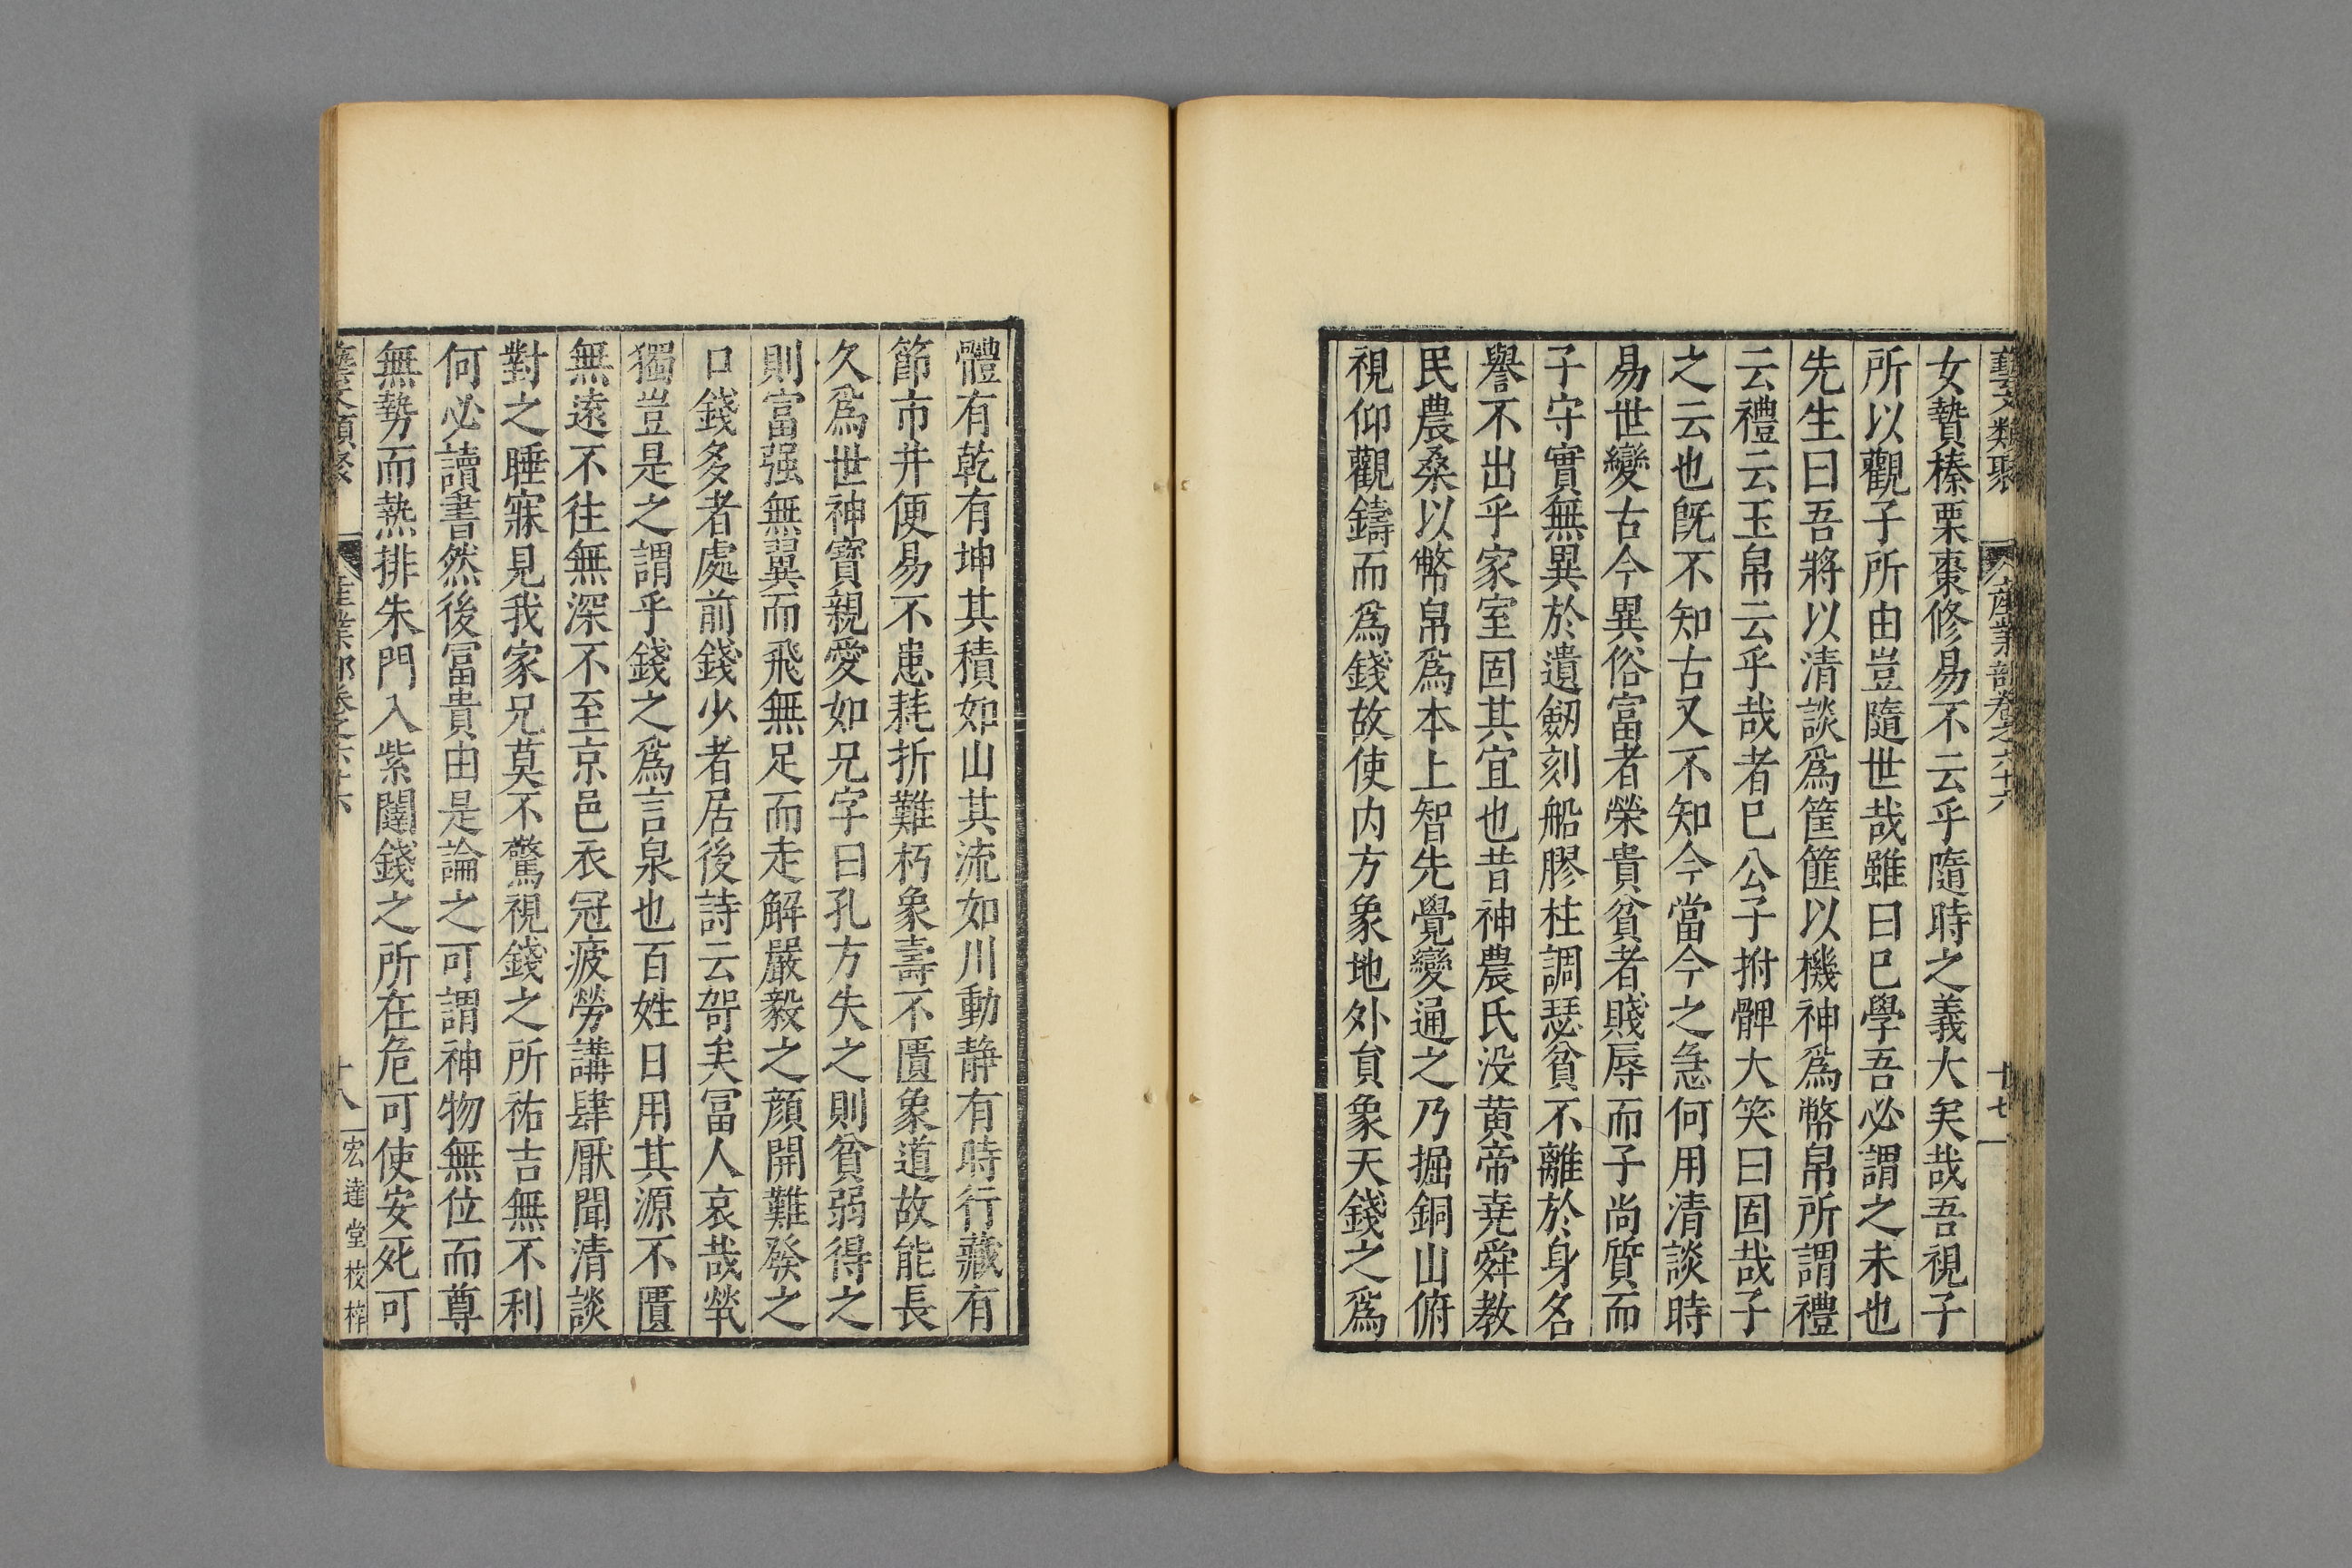 藝文類聚 產業部卷之六十六 十七
女贄榛栗棗修易不云乎隨時之義大矣哉吾視子
所以觀子所由豈隨世哉雖曰已學吾必謂之未也
先生曰吾將以清談爲筐篚以機神爲幣帛所謂禮
云禮云玉帛云乎哉者已公子拊髀大笑曰固哉子
之云也旣不知古又不知今當今之急何用清談時
易世變古今異俗富者榮貴貧者賤辱而子尚質而
子守實無異於遺劒刻船膠柱調瑟貧不離於身名
譽不出乎家室固其宜也昔神農氏没黄帝堯舜教
民農桑以幣帛爲本上智先覺變通之乃掘銅山俯
視仰觀鑄而爲錢故使内方象地外貟象天錢之爲
體有乾有坤其積如山其流如川動静有時行藏有
節市井便易不患耗折難朽象壽不匱象道故能長
久爲世神寳親愛如兄字曰孔方失之則貧弱得之
則富强無翼而飛無足而走解嚴毅之顔開難發之
口錢多者處前錢少者居後詩云哿矣冨人哀哉煢
獨豈是之謂乎錢之爲言泉也百姓日用其源不匱
無遠不往無深不至京邑衣冠疲勞講肆厭聞清談
對之睡寐見我家兄莫不驚視錢之所祐吉無不利
何必讀書然後冨貴由是論之可謂神物無位而尊
無勢而熱排朱門入紫闥錢之所在危可使安死可
藝文類聚 產業部卷之六十六 十八 宏達堂校梓